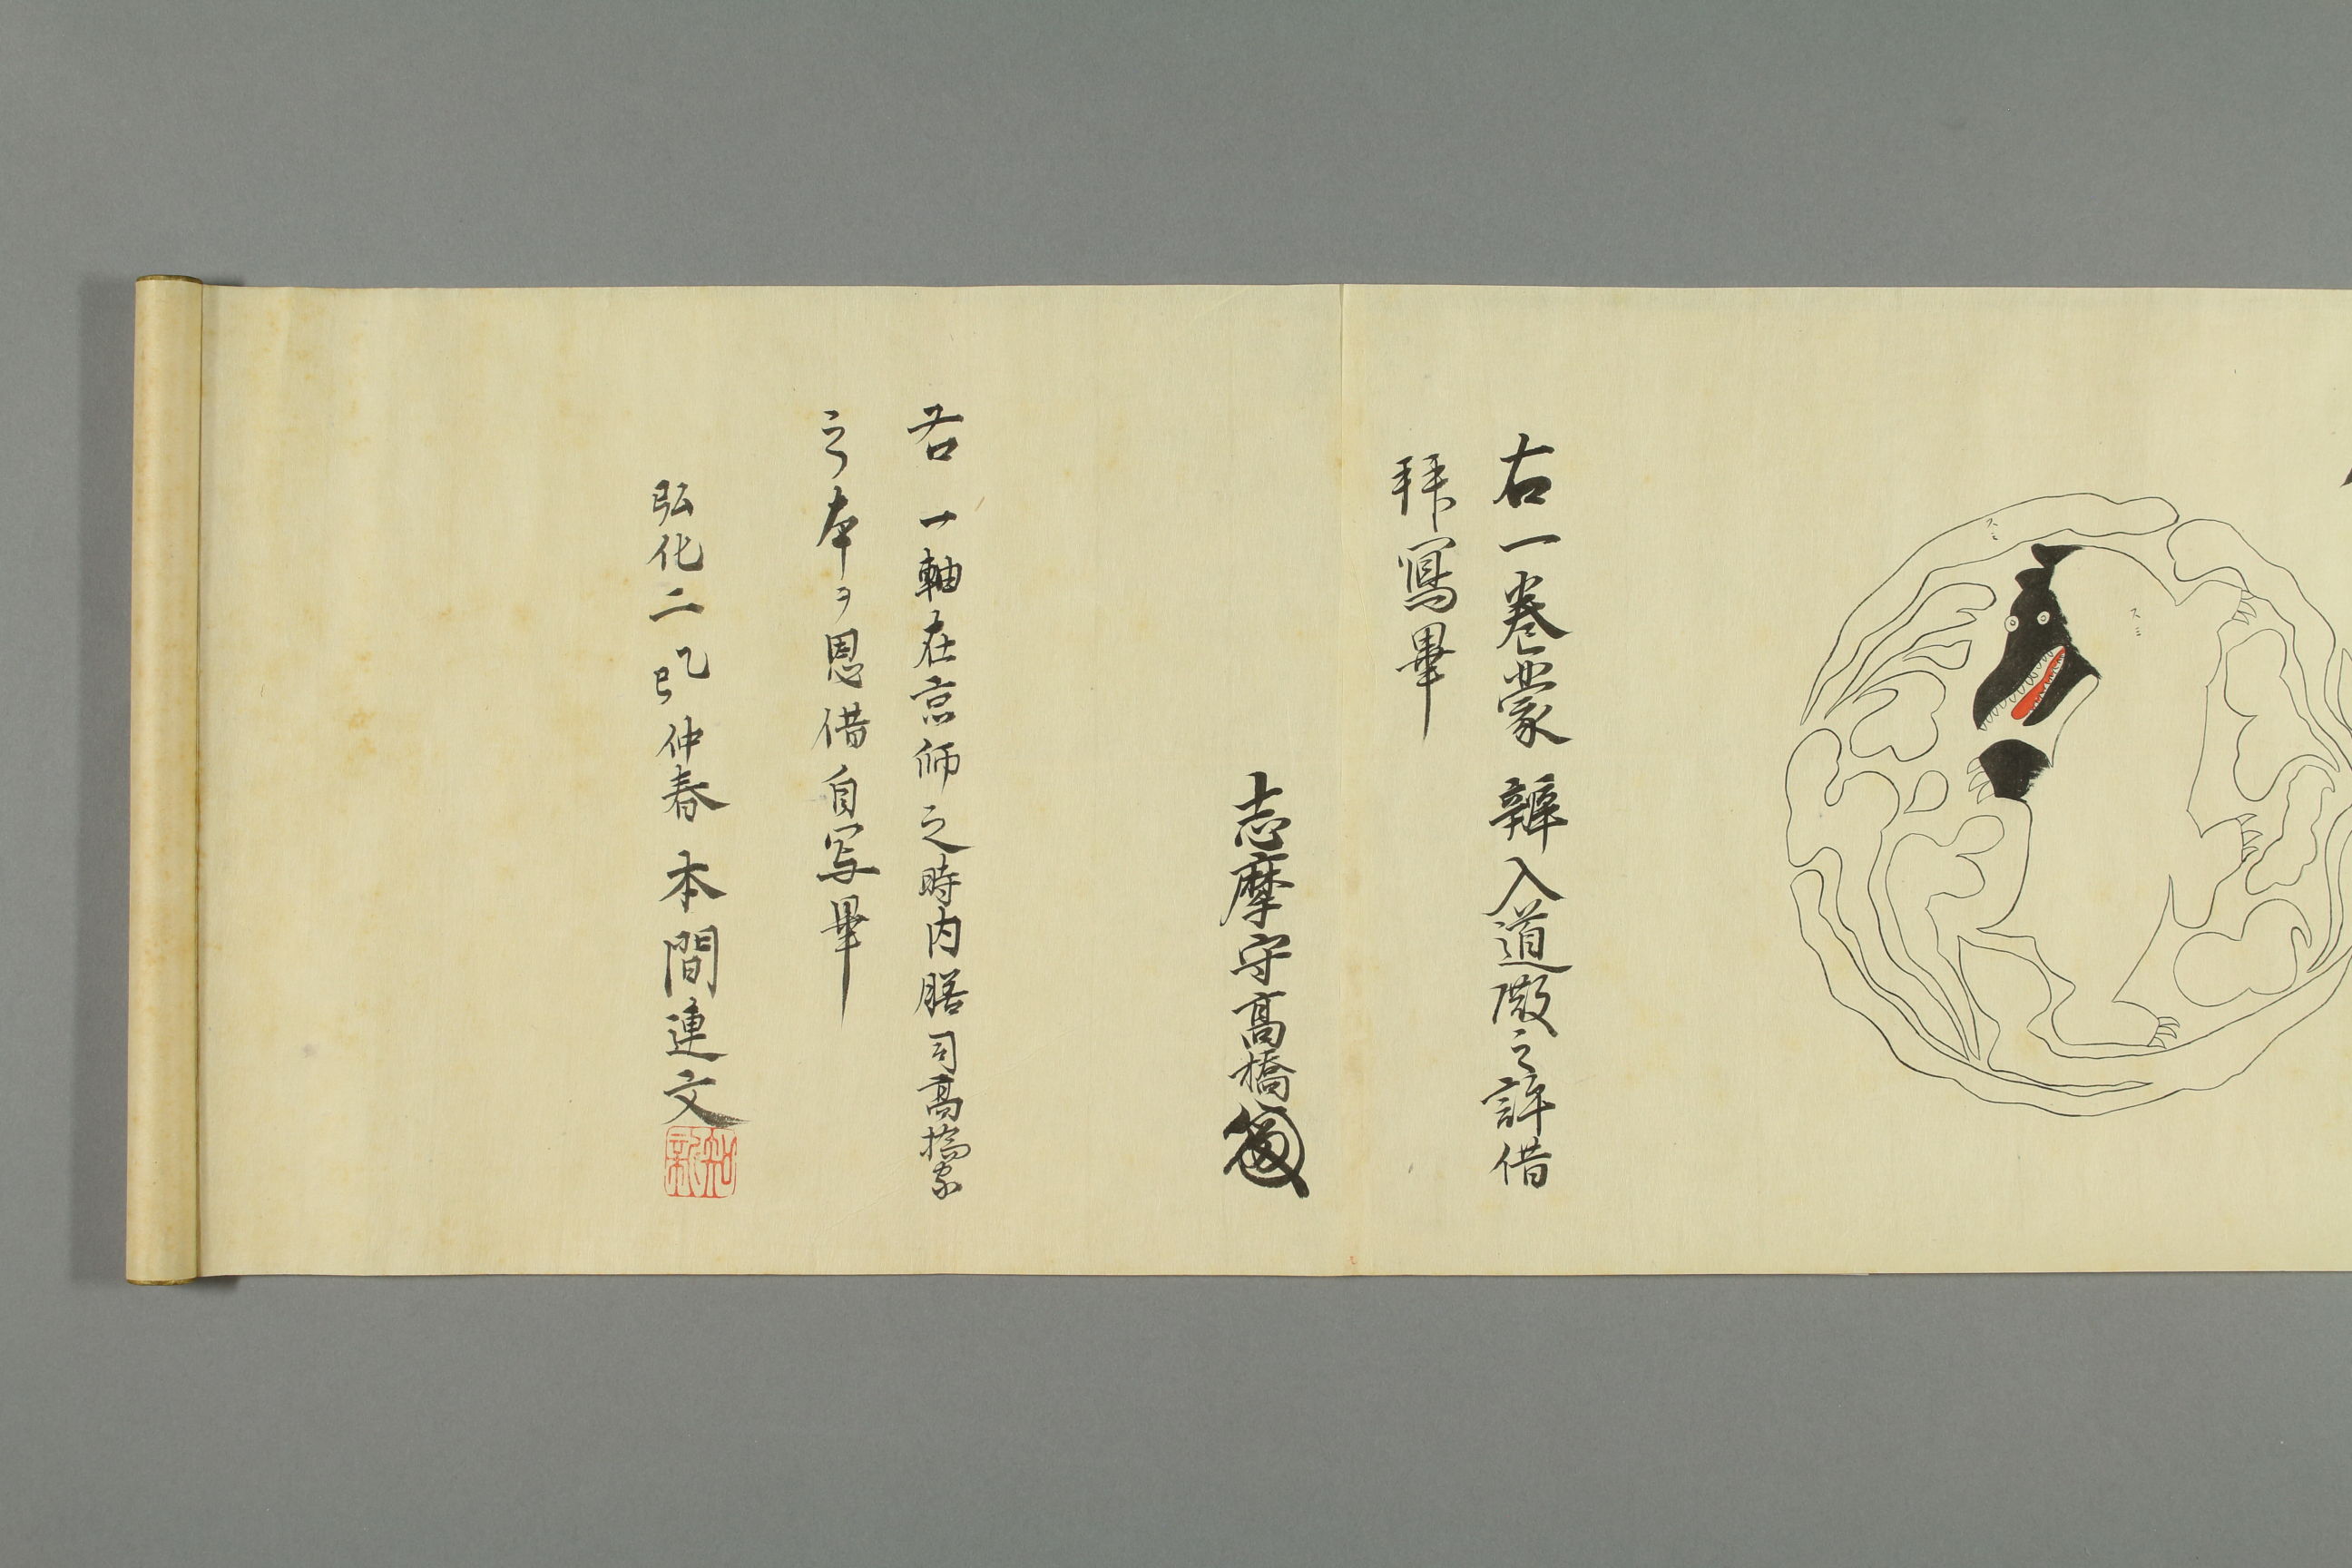 スミ
スミ
右一巻蒙辨入道殿之許借
拝寫畢
志摩守高橋
右一軸在京師之時内膳司高橋家
之本ヲ恩借自写畢
弘化二乙巳仲春 本間連文
知新